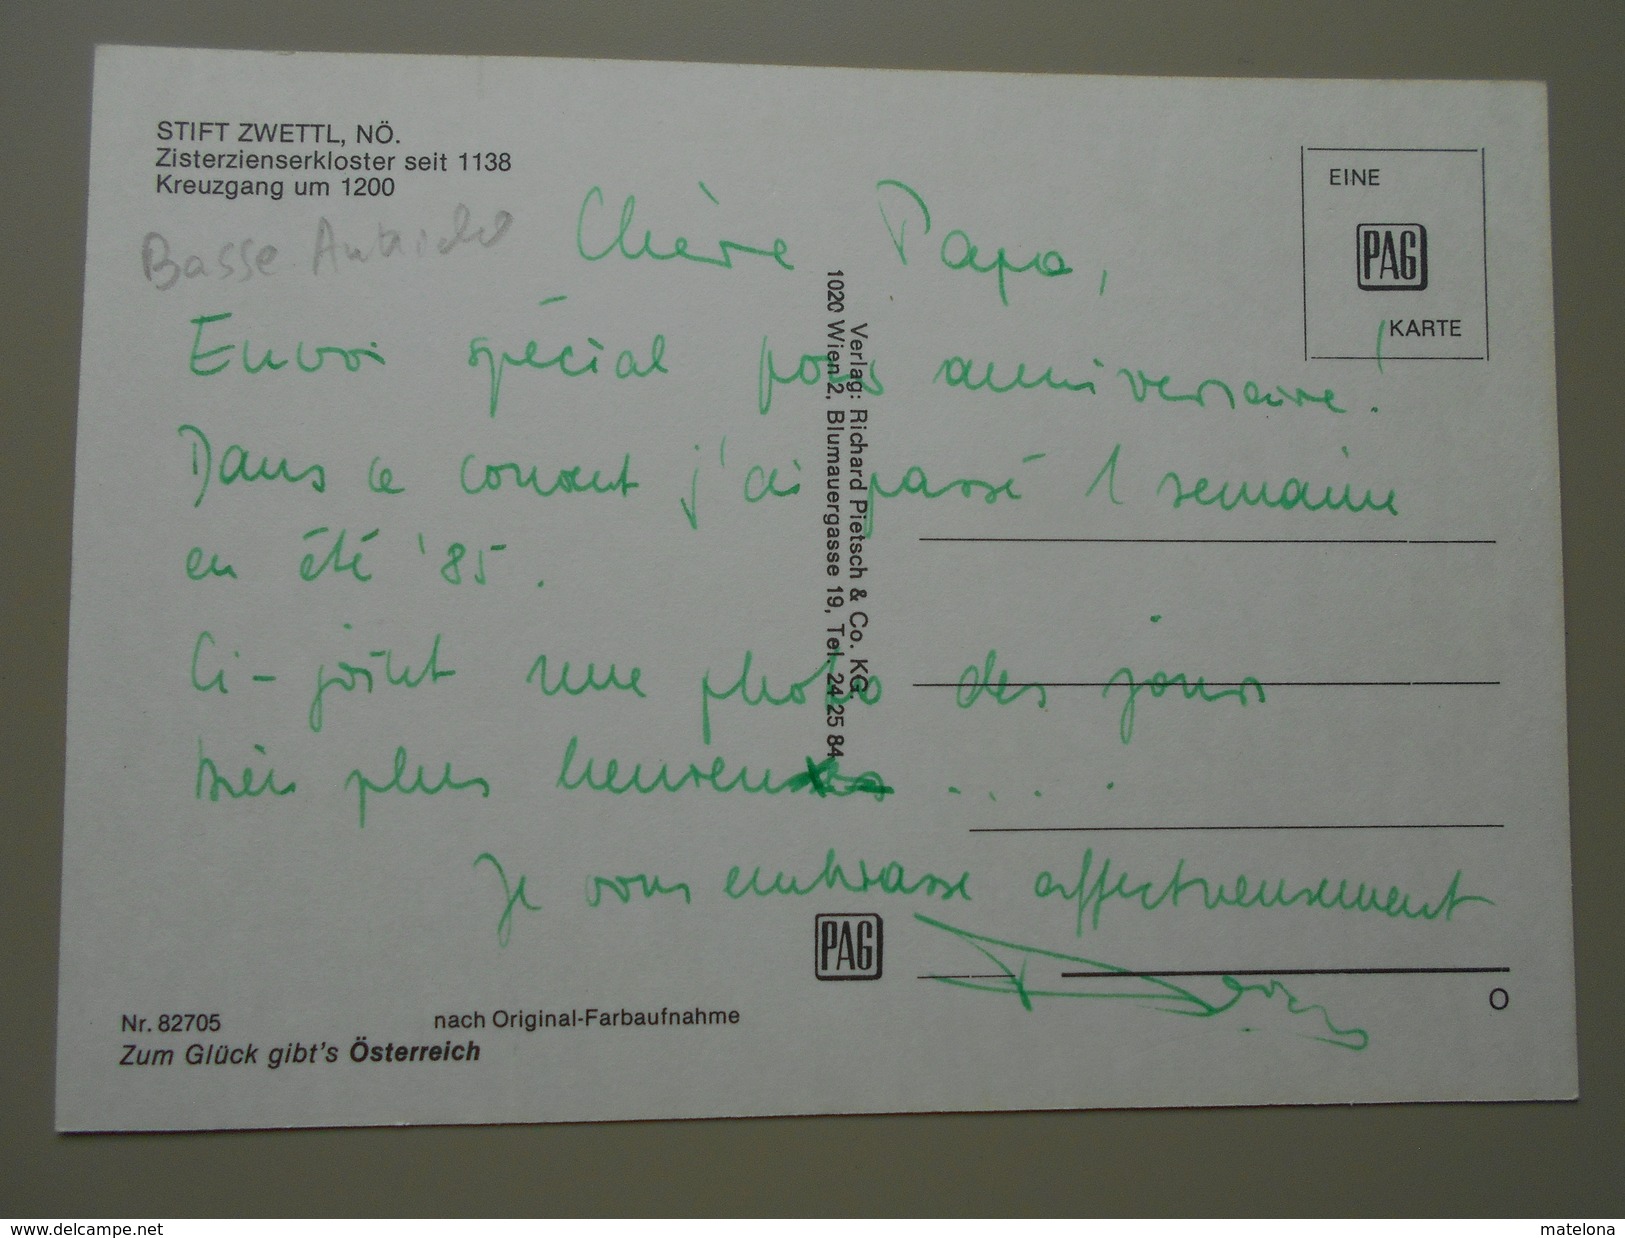 STIFT ZWETTL, NÖ.
Zisterzienserkloster seit 1138
Kreuzgang um 1200
Basse
EINE
PAG
KARTE
Chère Papa,
Envoi spécial pour anniversaire!
Dans ce couvent j'ai passé 1 semaine
en été '85.
Ci-joint une photo des jours
bien plus heureux ....
Je vous embrasse affectueusement
Verlag: Richard Pietsch & Co. KG.
1020 Wien 2, Blumauergasse 19, Tel. 24 25 84
PAG
O
Nr. 82705 nach Original-Farbaufnahme
Zum Glück gibt's Österreich
www.delcampe.net matelona